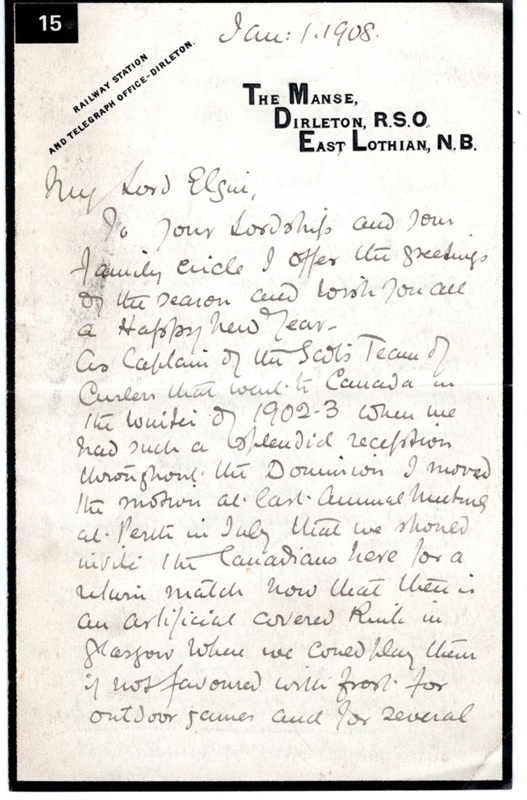 15
Jan: 1. 1908.
RAILWAY STATION
AND TELEGRAPH OFFICE-DIRLETON.
THE MANSE,
DIRLETON, R.S.O.
EAST LOTHIAN, N.B.
My Lord Elgin,
To your Lordship and your
family circle I offer the greetings
of the season and wish you all
a Happy New Year-
As Captain of the Scots Team of
Curlers that went to Canada in
the winter of 1902-3 when we
had such a splendid reception
throughout the Dominion I moved
the motion at last Annual Meeting
at Perth in July that we should
invite the Canadians here for a
return match now that there is
an artificial covered Rink in
Glasgow where we could play them
if not favoured with frost for
outdoor games and for several